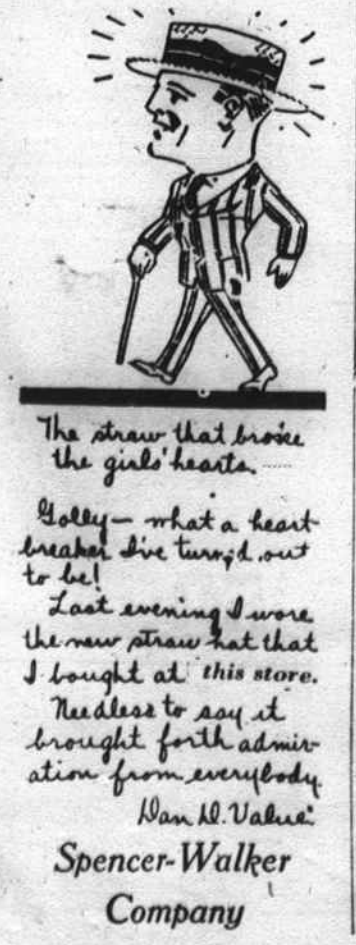 The straw that broke
the girls' hearts ......
Golly — what a heart-
breaker I've turn'd out
to be!
Last evening I wore
the new straw hat that
I bought at this store.
Needless to say it
brought forth admir-
ation from everybody.
Dan D. Value.
Spencer-Walker
Company